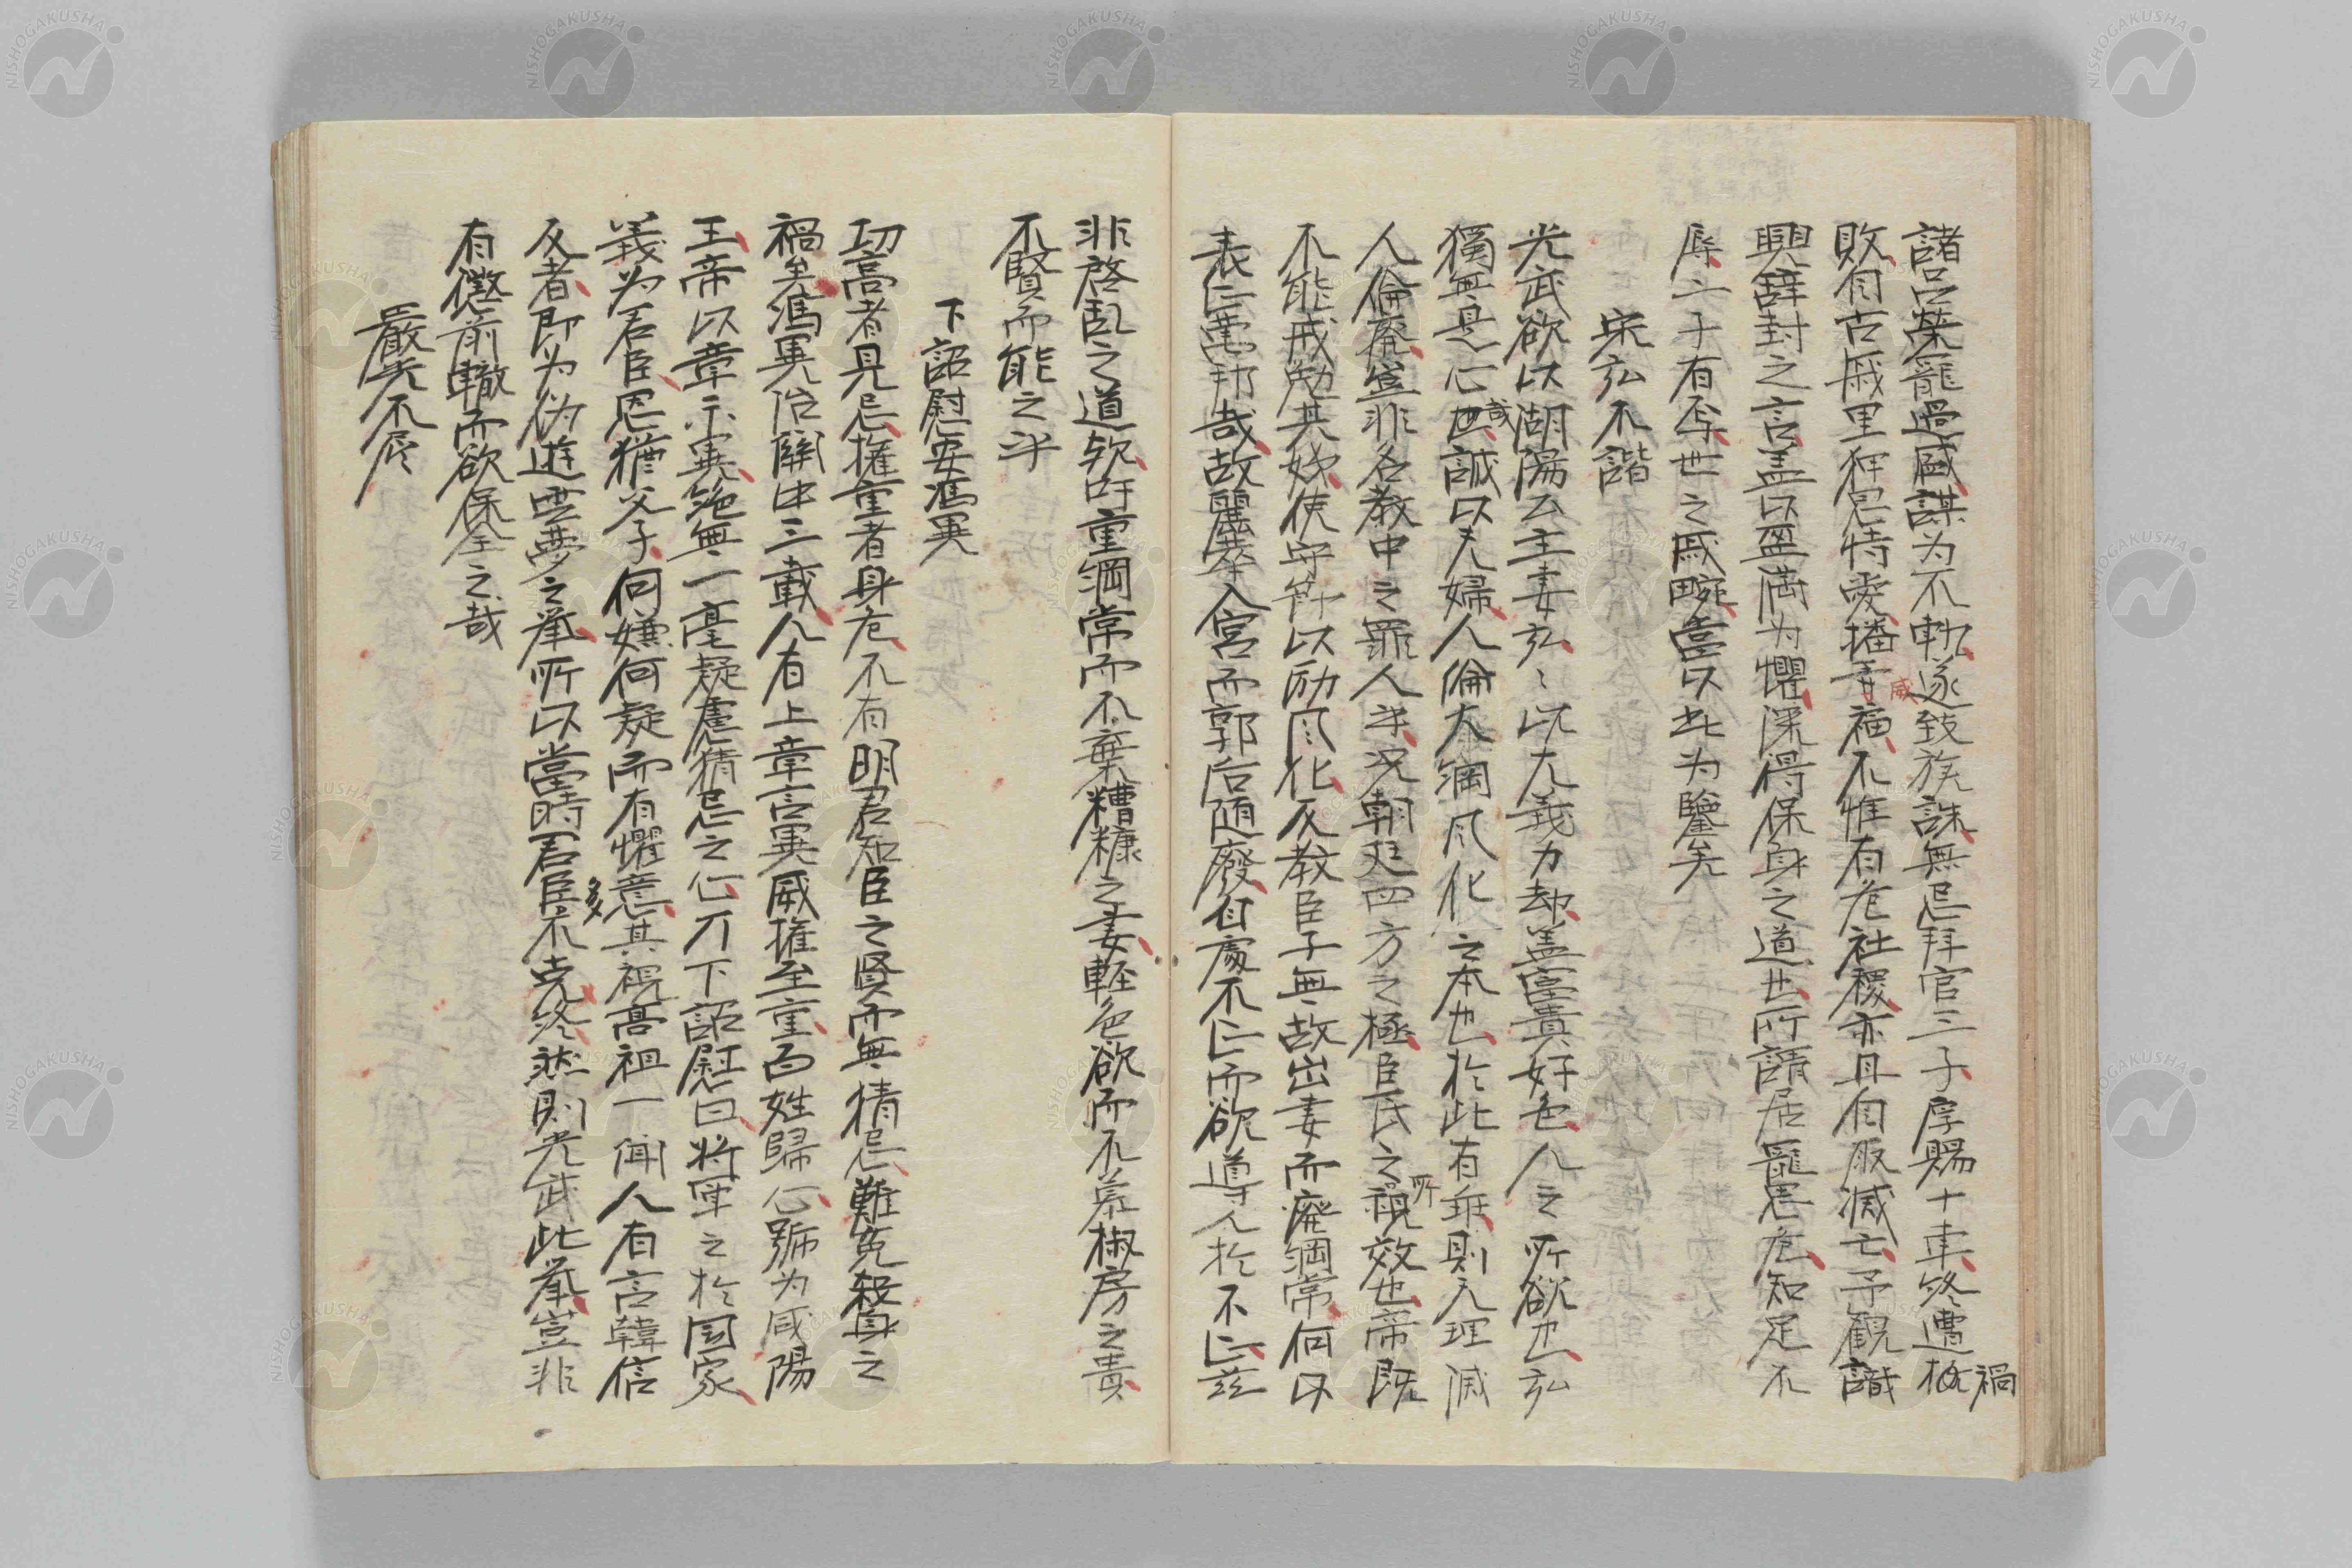 諸呂榮寵過盛謀为不軌遂致族誅無忌拜官三子厚賜十車終遭極禍
敗自古戚里狎恩恃愛播弄威福不惟有危社稷亦且自取滅亡予觀識
興辞封之言盖以盈満为懼深得保身之道也所請居寵思危知足不
辱二子有焉世之戚畹當以此为鑒矣
宋弘不諧
光武欲以湖陽公主妻弘〻以大義力却盖富貴好色人之所欲也弘
獨無是心哉誠以夫婦人倫大綱風化之本也於此有乖則天理滅
人倫廃豈非名教中之罪人乎况朝廷四方之極臣民之所視效也帝既
不能戒勉其姊使守節以励风化反教臣子無故出妻而廃綱常何以
表仁萬邦哉故麗華入宮而郭后随廢自處不仁而欲導人於不仁茲
非啓乱之道欤吁重綱常而不棄糟糠之妻輕色欲而不慕椒房之貴
不賢而能之乎
下詔慰安馮異
功高者見忌權重者身危不有明君知臣之賢而無猜忌難免殺身之
禍矣馮異治關中三載人有上章言異威權至重百姓歸心號为咸陽
王帝以章示異絶無一毫疑慮猜忌之心乃下詔慰曰将軍之於国家
義为君臣恩猶父子何嫌何疑而有懼意其視高祖一聞人有言韓信
反者即为伪遊雲夢之舉所以當時君臣多不克終然則光武此舉豈非
有懲前轍而欲保全之哉
嚴光不屈